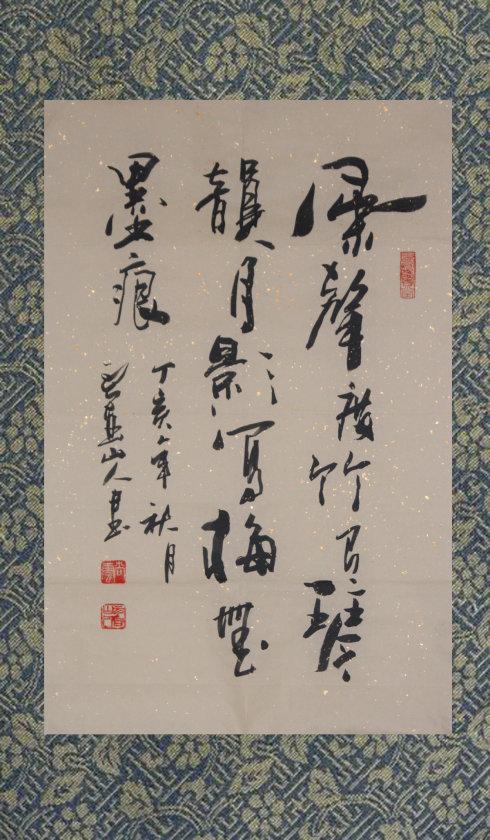 風聲度竹有琴
韻月影寫梅無
墨痕
丁亥年秋月
山人書